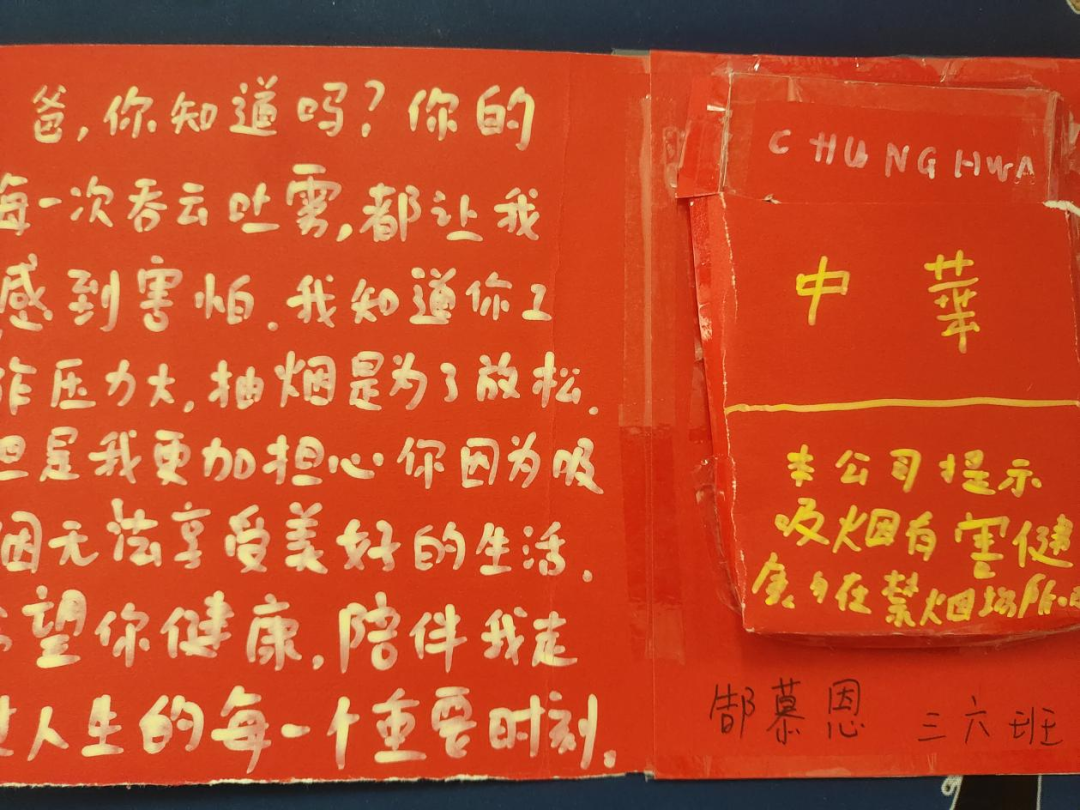 爸,你知道吗?你的
每一次吞云吐雾,都让我
感到害怕.我知道你工
作压力大,抽烟是为了放松.
但是我更加担心你因为吸
烟无法享受美好的生活.
希望你健康,陪伴我走
过人生的每一个重要时刻.
CHUNGHWA
中華
本公司提示
吸烟有害健
康勿在禁烟场所吸
郜慕恩 三六班